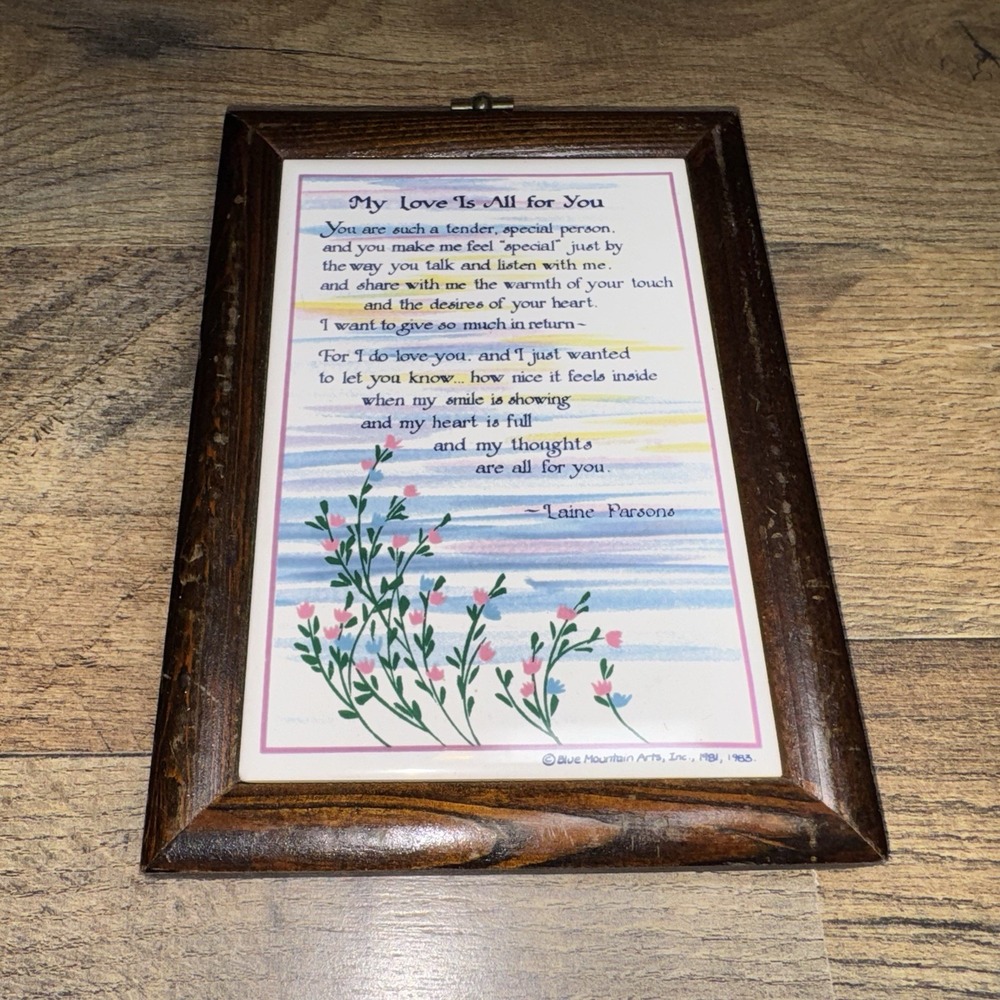 My Love Is All for You
You are such a tender, special person,
and you make me feel "special" just by
the way you talk and listen with me,
and share with me the warmth of your touch
and the desires of your heart.
I want to give so much in return~
For I do love you, and I just wanted
to let you know... how nice it feels inside
when my smile is showing
and my heart is full
and my thoughts
are all for you.
~Laine Parsons
© Blue Mountain Arts, Inc., 1981, 1983.